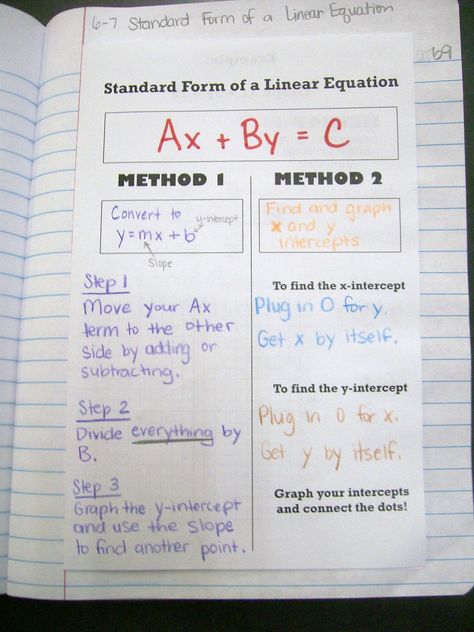 6-7 Standard Form of a Linear Equation
69
Standard Form of a Linear Equation
Ax + By = C
METHOD 1
Convert to
y-intercept
y=mx+b
Slope
Step 1
Move your Ax
term to the other
side by adding or
subtracting.
Step 2
Divide everything by
B.
Step 3
Graph the y-intercept
and use the slope
to find another point.
METHOD 2
Find and graph
x and y
intercepts
To find the x-intercept
Plug in 0 for y.
Get x by itself.
To find the y-intercept
Plug in 0 for x.
Get y by itself.
Graph your intercepts
and connect the dots!